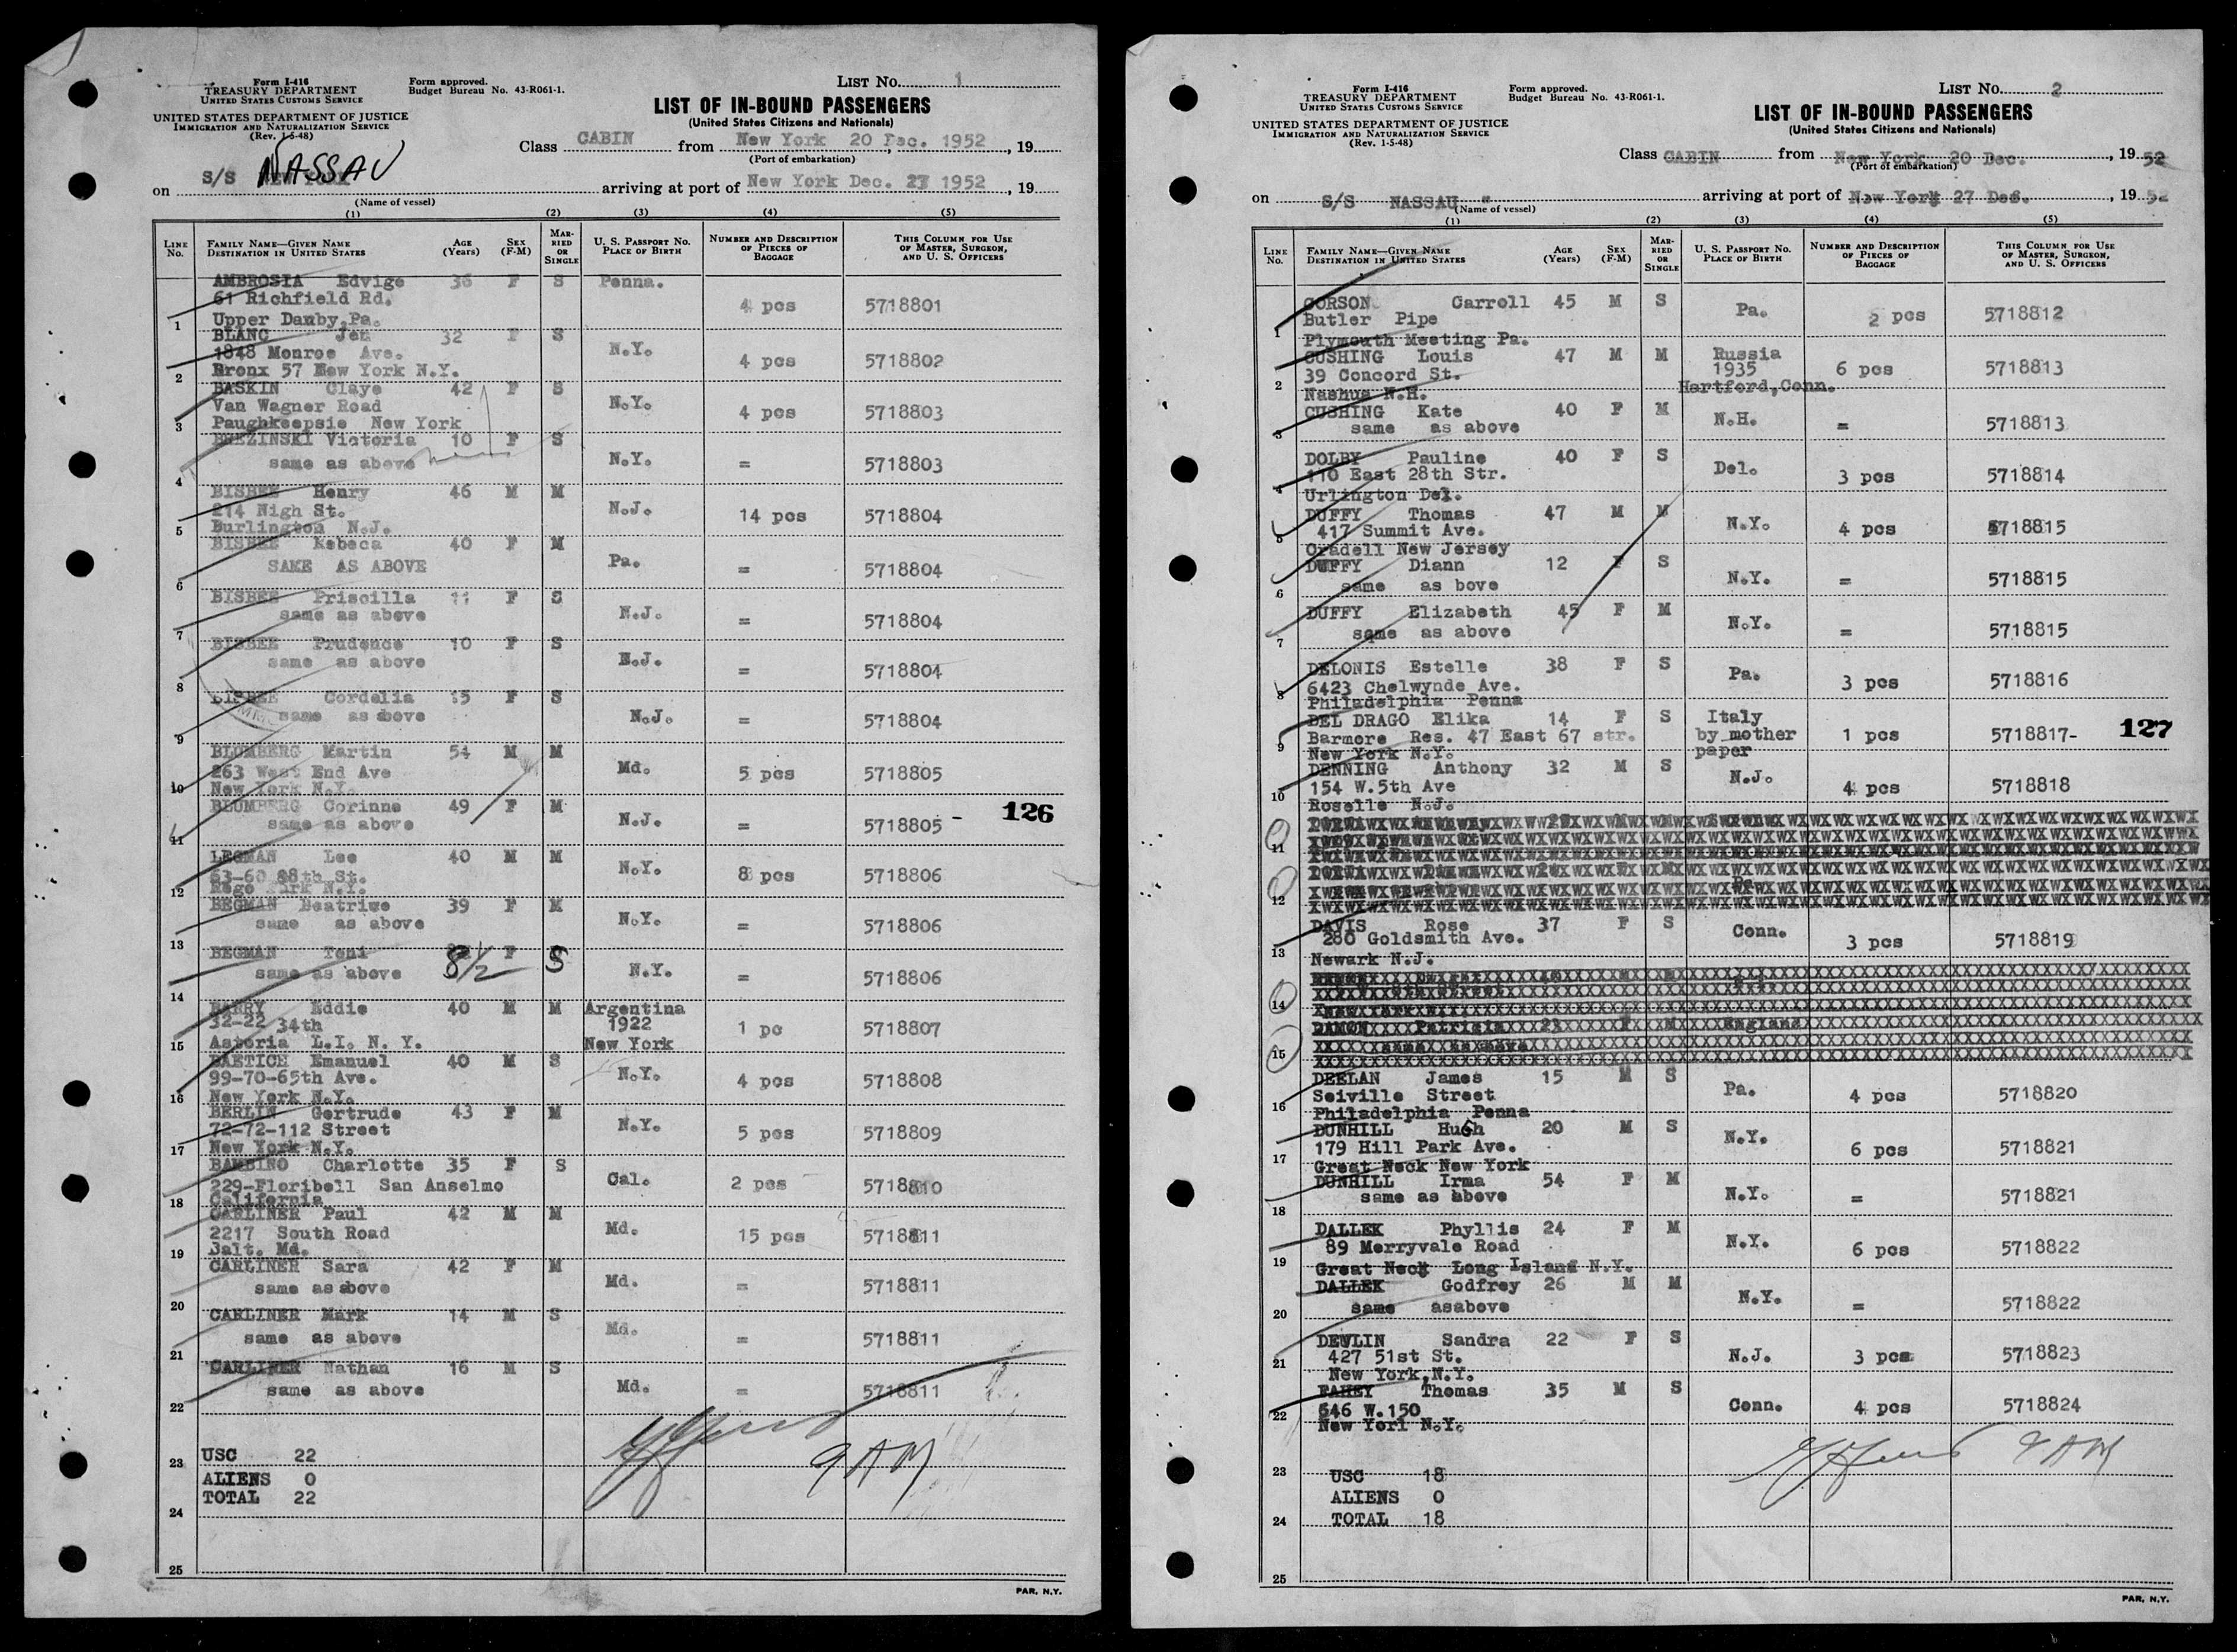 Form I-416
TREASURY DEPARTMENT
UNITED STATES CUSTOMS SERVICE
UNITED STATES DEPARTMENT OF JUSTICE
IMMIGRATION AND NATURALIZATION SERVICE
(Rev. 1-5-48)
Form approved.
Budget Bureau No. 43-R061-1.
LIST NO. 1
LIST OF IN-BOUND PASSENGERS
(United States Citizens and Nationals)
Class CABIN from New York 20 Dec. 1952, 19
(Port of embarkation)
on S/S NASSAU arriving at port of New York Dec. 27 1952, 19
(Name of vessel)
(1) (2) (3) (4) (5)
LINE No. FAMILY NAME—GIVEN NAME DESTINATION IN UNITED STATES AGE (Years) SEX (F-M) MARRIED OR SINGLE U. S. PASSPORT NO. PLACE OF BIRTH NUMBER AND DESCRIPTION OF PIECES OF BAGGAGE THIS COLUMN FOR USE OF MASTER, SURGEON, AND U. S. OFFICERS
AMBROSIA Edvige 36 F S Penna.
61 Richfield Rd. 4 pcs 5718801
1 Upper Danby,Pa.
BLANC Jen 32 F S
1848 Monroe Ave. N.Y. 4 pcs 5718802
2 Bronx 57 New York N.Y.
BASKIN Claye 42 F S
Van Wagner Road N.Y. 4 pcs 5718803
3 Paughkeepsie New York
BREZINSKI Victoria 10 F S
same as above N.Y. = 5718803
4
BISBEE Henry 46 M M
214 Nigh St. N.J. 14 pcs 5718804
5 Burlington N.J.
BISBEE Rebeca 40 F M
SAKE AS ABOVE Pa. = 5718804
6
BISBEE Priscilla 11 F S
same as above N.J. = 5718804
7
BISBEE Prudence 10 F S
same as above N.J. = 5718804
8
BISBEE Cordelia 15 F S
same as above N.J. = 5718804
9
BLUMBERG Martin 54 M M
263 West End Ave Md. 5 pcs 5718805
10 New York N.Y.
BLUMBERG Corinne 49 F M
same as above N.J. = 5718805 - 126
11
LEGMAN Lee 40 M M
63-60 88th St. N.Y. 8 pcs 5718806
12 Rego Park N.Y.
BEGMAN Beatrice 39 F M
same as above N.Y. = 5718806
13
BEGMAN Toni 8 1/2 F S
same as above N.Y. = 5718806
14
BARRY Eddie 40 M M Argentina
32-22 34th 1922 1 pc 5718807
15 Astoria L.I. N. Y. New York
BAETICH Emanuel 40 M S
99-70-65th Ave. N.Y. 4 pcs 5718808
16 New York N.Y.
BERLIN Gertrude 43 F M
72-72-112 Street N.Y. 5 pcs 5718809
17 New York N.Y.
BAMBINO Charlotte 35 F S
229-Floribell San Anselmo Cal. 2 pcs 5718810
18 California
CARLINER Paul 42 M M
2217 South Road Md. 15 pcs 5718811
19 Balt. Md.
CARLINER Sara 42 F M
same as above Md. = 5718811
20
CARLINER Mark 14 M S
same as above Md. = 5718811
21
CARLINER Nathan 16 M S
same as above Md. = 5718811
22
USC 22
23 9 AM
ALIENS 0
TOTAL 22
24
25
PAR, N.Y.
Form I-416
TREASURY DEPARTMENT
UNITED STATES CUSTOMS SERVICE
UNITED STATES DEPARTMENT OF JUSTICE
IMMIGRATION AND NATURALIZATION SERVICE
(Rev. 1-5-48)
Form approved.
Budget Bureau No. 43-R061-1.
LIST NO. 2
LIST OF IN-BOUND PASSENGERS
(United States Citizens and Nationals)
Class CABIN from New York 20 Dec., 19 52
(Port of embarkation)
on S/S NASSAU " arriving at port of New York 27 Dec., 19 52
(Name of vessel)
(1) (2) (3) (4) (5)
LINE No. FAMILY NAME—GIVEN NAME DESTINATION IN UNITED STATES AGE (Years) SEX (F-M) MARRIED OR SINGLE U. S. PASSPORT NO. PLACE OF BIRTH NUMBER AND DESCRIPTION OF PIECES OF BAGGAGE THIS COLUMN FOR USE OF MASTER, SURGEON, AND U. S. OFFICERS
CORSON Carroll 45 M S
Butler Pipe Pa. 2 pcs 5718812
1 Plymouth Meeting Pa.
CUSHING Louis 47 M M Russia
39 Concord St. 1935 6 pcs 5718813
2 Nashua N.H. Hartford,Conn.
CUSHING Kate 40 F M
same as above N.H. = 5718813
3
DOLBY Pauline 40 F S
110 East 28th Str. Del. 3 pcs 5718814
4 Urlington Del.
DUFFY Thomas 47 M M
5 417 Summit Ave. N.Y. 4 pcs 5718815
Oradell New Jersey
DUFFY Diann 12 F S
same as bove N.Y. = 5718815
6
DUFFY Elizabeth 45 F M
same as above N.Y. = 5718815
7
DELONIS Estelle 38 F S
6423 Chelwynde Ave. Pa. 3 pcs 5718816
8 Philadelphia Penna
DEL DRAGO Elika 14 F S Italy
Barmore Res. 47 East 67 str. by mother 1 pcs 5718817- 127
9 New York N.Y. paper
DENNING Anthony 32 M S
154 W.5th Ave N.J. 4 pcs 5718818
10 Roselle N.J.
11
12
DAVIS Rose 37 F S
280 Goldsmith Ave. Conn. 3 pcs 5718819
13 Newark N.J.
14
DAMON Patricia 23 F M England
15 same as above
DEELAN James 15 M S
Seiville Street Pa. 4 pcs 5718820
16 Philadelphia Penna
DUNHILL Hugh 20 M S
179 Hill Park Ave. N.Y. 6 pcs 5718821
17 Great Neck New York
DUNHILL Irma 54 F M
same as above N.Y. = 5718821
18
DALLEK Phyllis 24 F M
89 Merryvale Road N.Y. 6 pcs 5718822
19 Great Neck Long Island N.Y.
DALLEK Godfrey 26 M M
same asabove N.Y. = 5718822
20
DEVLIN Sandra 22 F S
427 51st St. N.J. 3 pcs 5718823
21 New York,N.Y.
FAHEY Thomas 35 M S
646 W.150 Conn. 4 pcs 5718824
22 New Yorl N.Y.
9 AM
23 USC 18
ALIENS 0
24 TOTAL 18
25
PAR, N.Y.